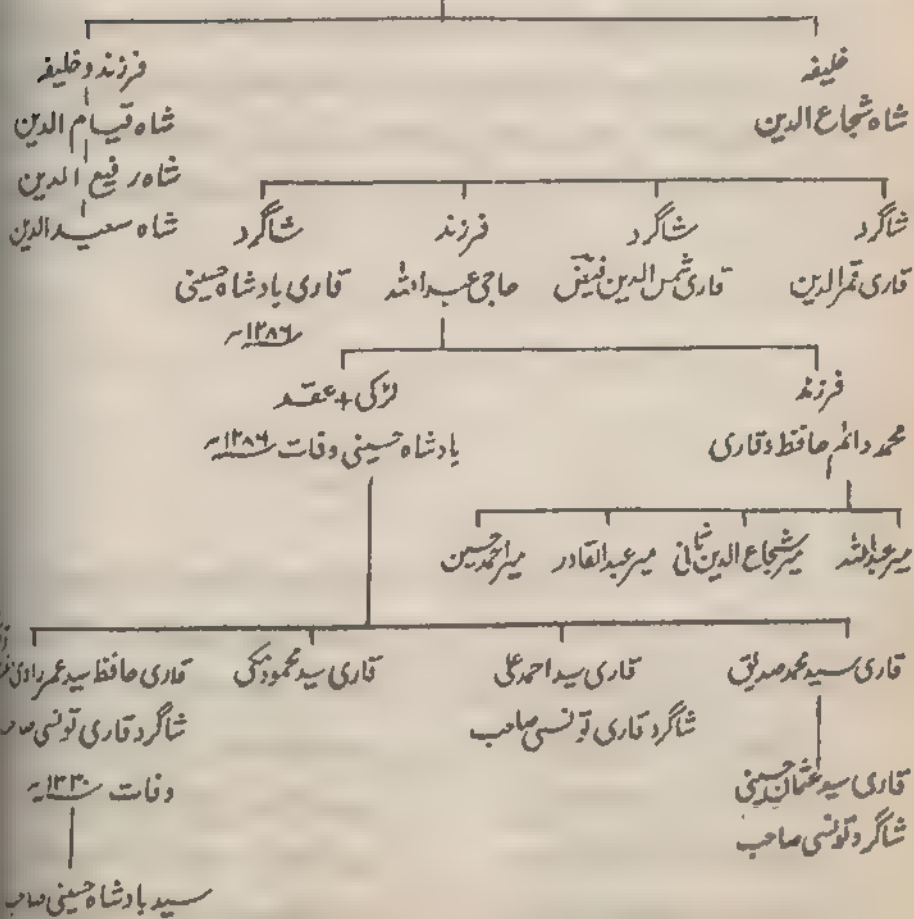 خلیفہ
شاہ شجاع الدین
فرزند و خلیفہ
شاہ قیام الدین
شاہ رفیع الدین
شاہ سعید الدین
شاگرد
قاری قمر الدین
شاگرد
قاری شمس الدین فیض
فرزند
حاجی عبداللہ
شاگرد
قاری بادشاہ حسینی
۱۲۸۶
فرزند
محمد دائم حافظ و قاری
لڑکی + عقد
بادشاہ حسینی وفات ۱۲۸۶
میر عبداللہ
میر شجاع الدین ثانی
میر عبدالقادر
میر احمد حسین
قاری سید محمد صدیق
قاری سید عثمان حسینی
شاگرد تونسی صاحب
قاری سید احمد علی
شاگرد قاری تونسی صاحب
قاری سید محمود مکی
قاری حافظ سید عمر
شاگرد قاری تونسی صاحب
وفات ۱۳۳۰
سید بادشاہ حسینی صاحب